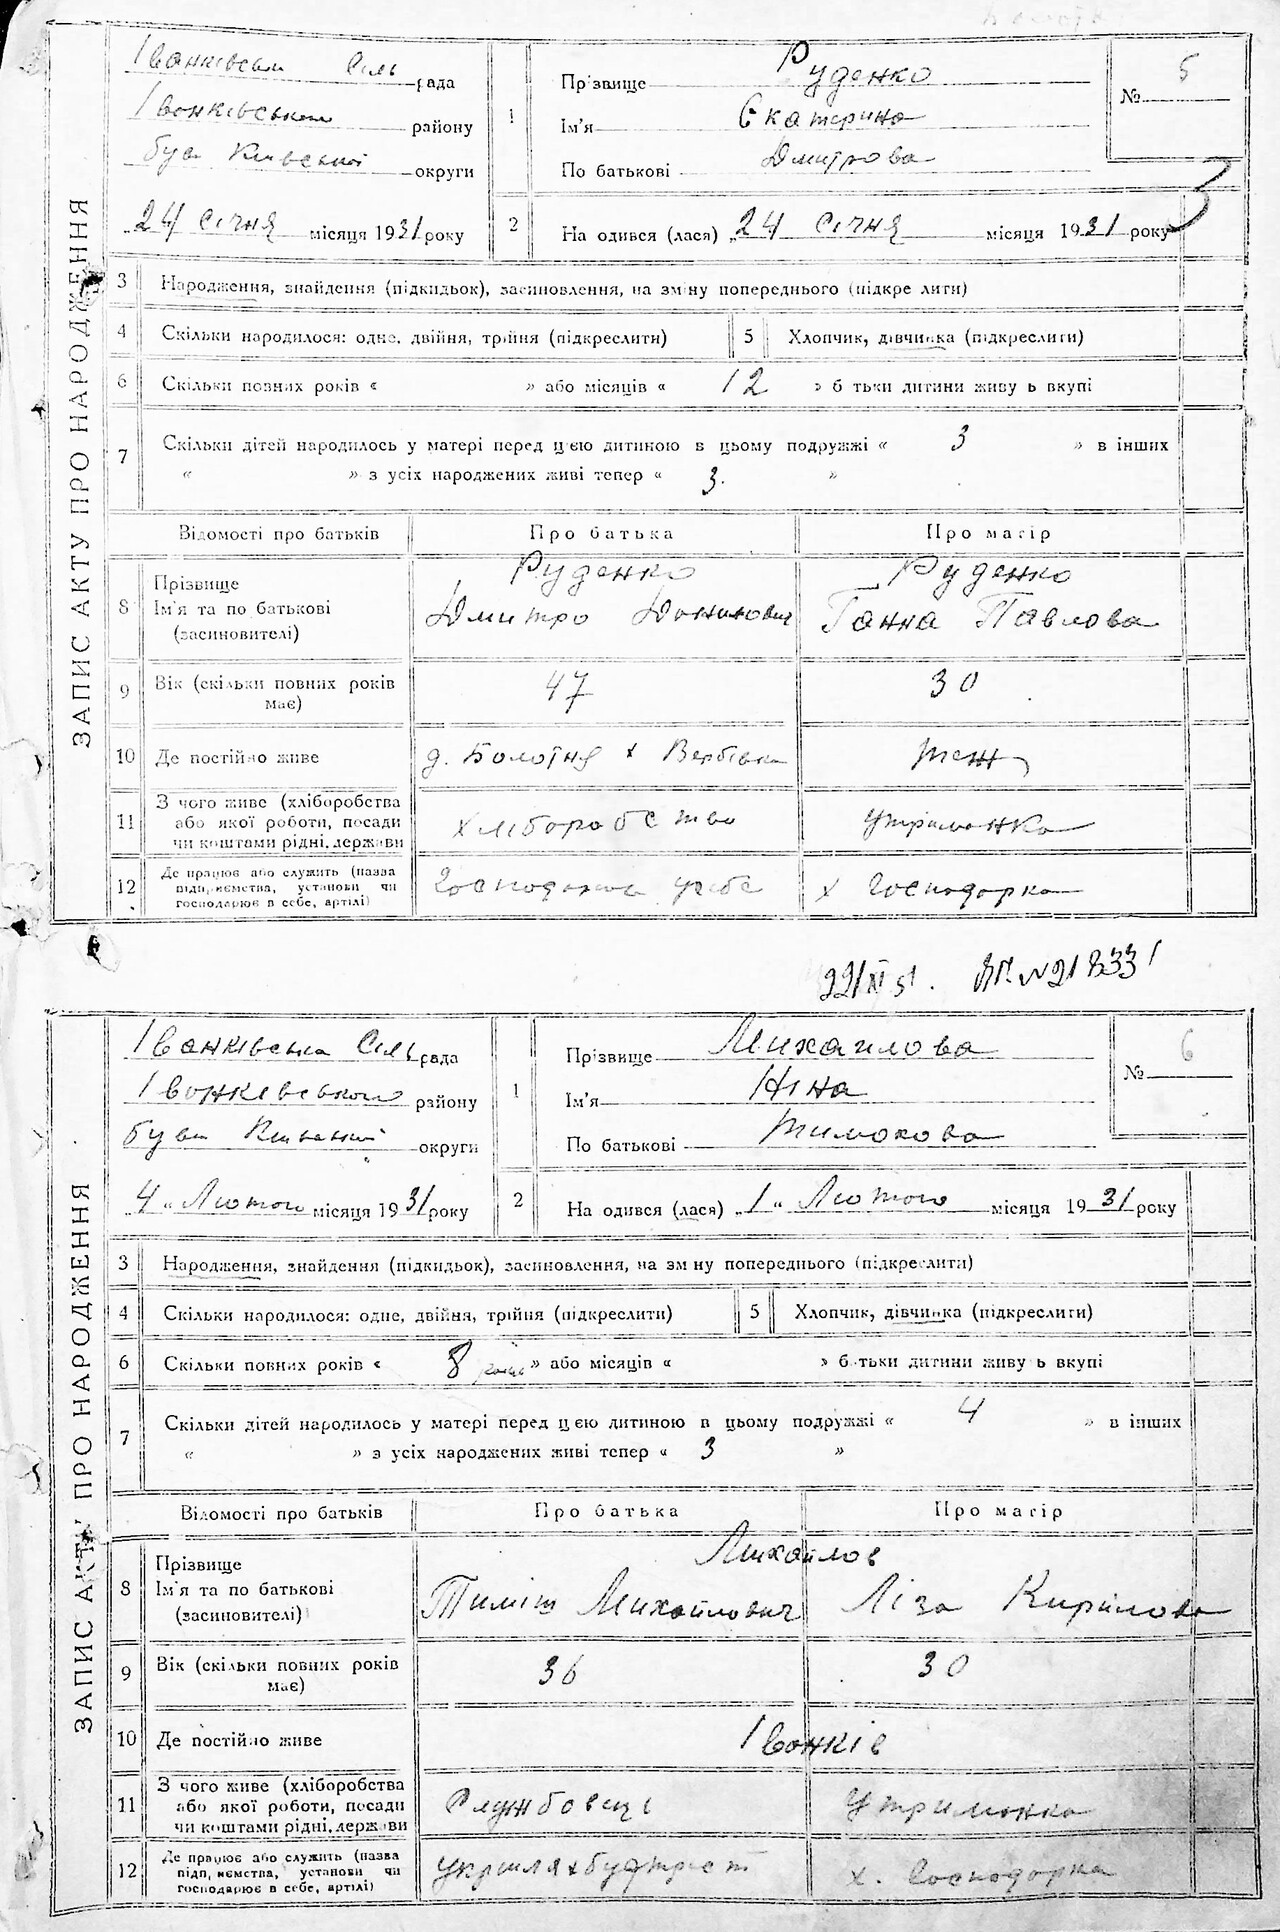 ЗАПИС АКТУ ПРО НАРОДЖЕННЯ
Іванківська Сіль рада
Іванківського району
був Київської округи
24 січня місяця 1931 року
1 Прізвище Руденко
Ім'я Єкатерина
По батькові Дмитрова
№ 5
2 На одився (лася) 24 січня місяця 1931 року
3 Народження, знайдення (підкидьок), засиновлення, на зміну попереднього (підкре лити)
4 Скільки народилося: одне, двійня, трійня (підкреслити) 5 Хлопчик, дівчинка (підкреслити)
6 Скільки повних років « » або місяців « 12 » б тьки дитини живу ь вкупі
7 Скільки дітей народилось у матері перед цією дитиною в цьому подружжі « 3 » в інших
« » з усіх народжених живі тепер « 3. »
Відомості про батьків Про батька Про матір
8 Прізвище Ім'я та по батькові (засиновителі) Руденко Дмитро Руденко Ганна Павлова
9 Вік (скільки повних років має) 47 30
10 Де постійно живе д. Болотня х Вербівка теж
11 З чого живе (хліборобства або якої роботи, посади чи коштами рідні, держави хліборобство утриманка
12 Де працює або служить (назва підприємства, установи чи господарює в себе, артілі) Господарює у себе х Господарка
22/XI 51. № 218331
ЗАПИС АКТУ ПРО НАРОДЖЕННЯ
Іванківська Сіль рада
Іванківського району
був Київської округи
4 " Лютого місяця 1931 року
1 Прізвище Михайлова
Ім'я Ніна
По батькові Тимохова
№ 6
2 На одився (лася) 1 " Лютого місяця 1931 року
3 Народження, знайдення (підкидьок), засиновлення, на зм ну попереднього (підкреслити)
4 Скільки народилося: одне, двійня, трійня (підкреслити) 5 Хлопчик, дівчинка (підкреслити)
6 Скільки повних років « 8 років » або місяців « » б тьки дитини живу ь вкупі
7 Скільки дітей народилось у матері перед цією дитиною в цьому подружжі « 4 » в інших
« » з усіх народжених живі тепер « 3 »
Відомості про батьків Про батька Про матір
8 Прізвище Ім'я та по батькові (засиновителі) Михайлов Тиміш Михайлович Ліза Кирілова
9 Вік (скільки повних років має) 36 30
10 Де постійно живе Іванків
11 З чого живе (хліборобства або якої роботи, посади чи коштами рідні, держави Службовець Утриманка
12 Де працює або служить (назва підп, ємства, установи чи господарює в себе, артілі) х. Господарка